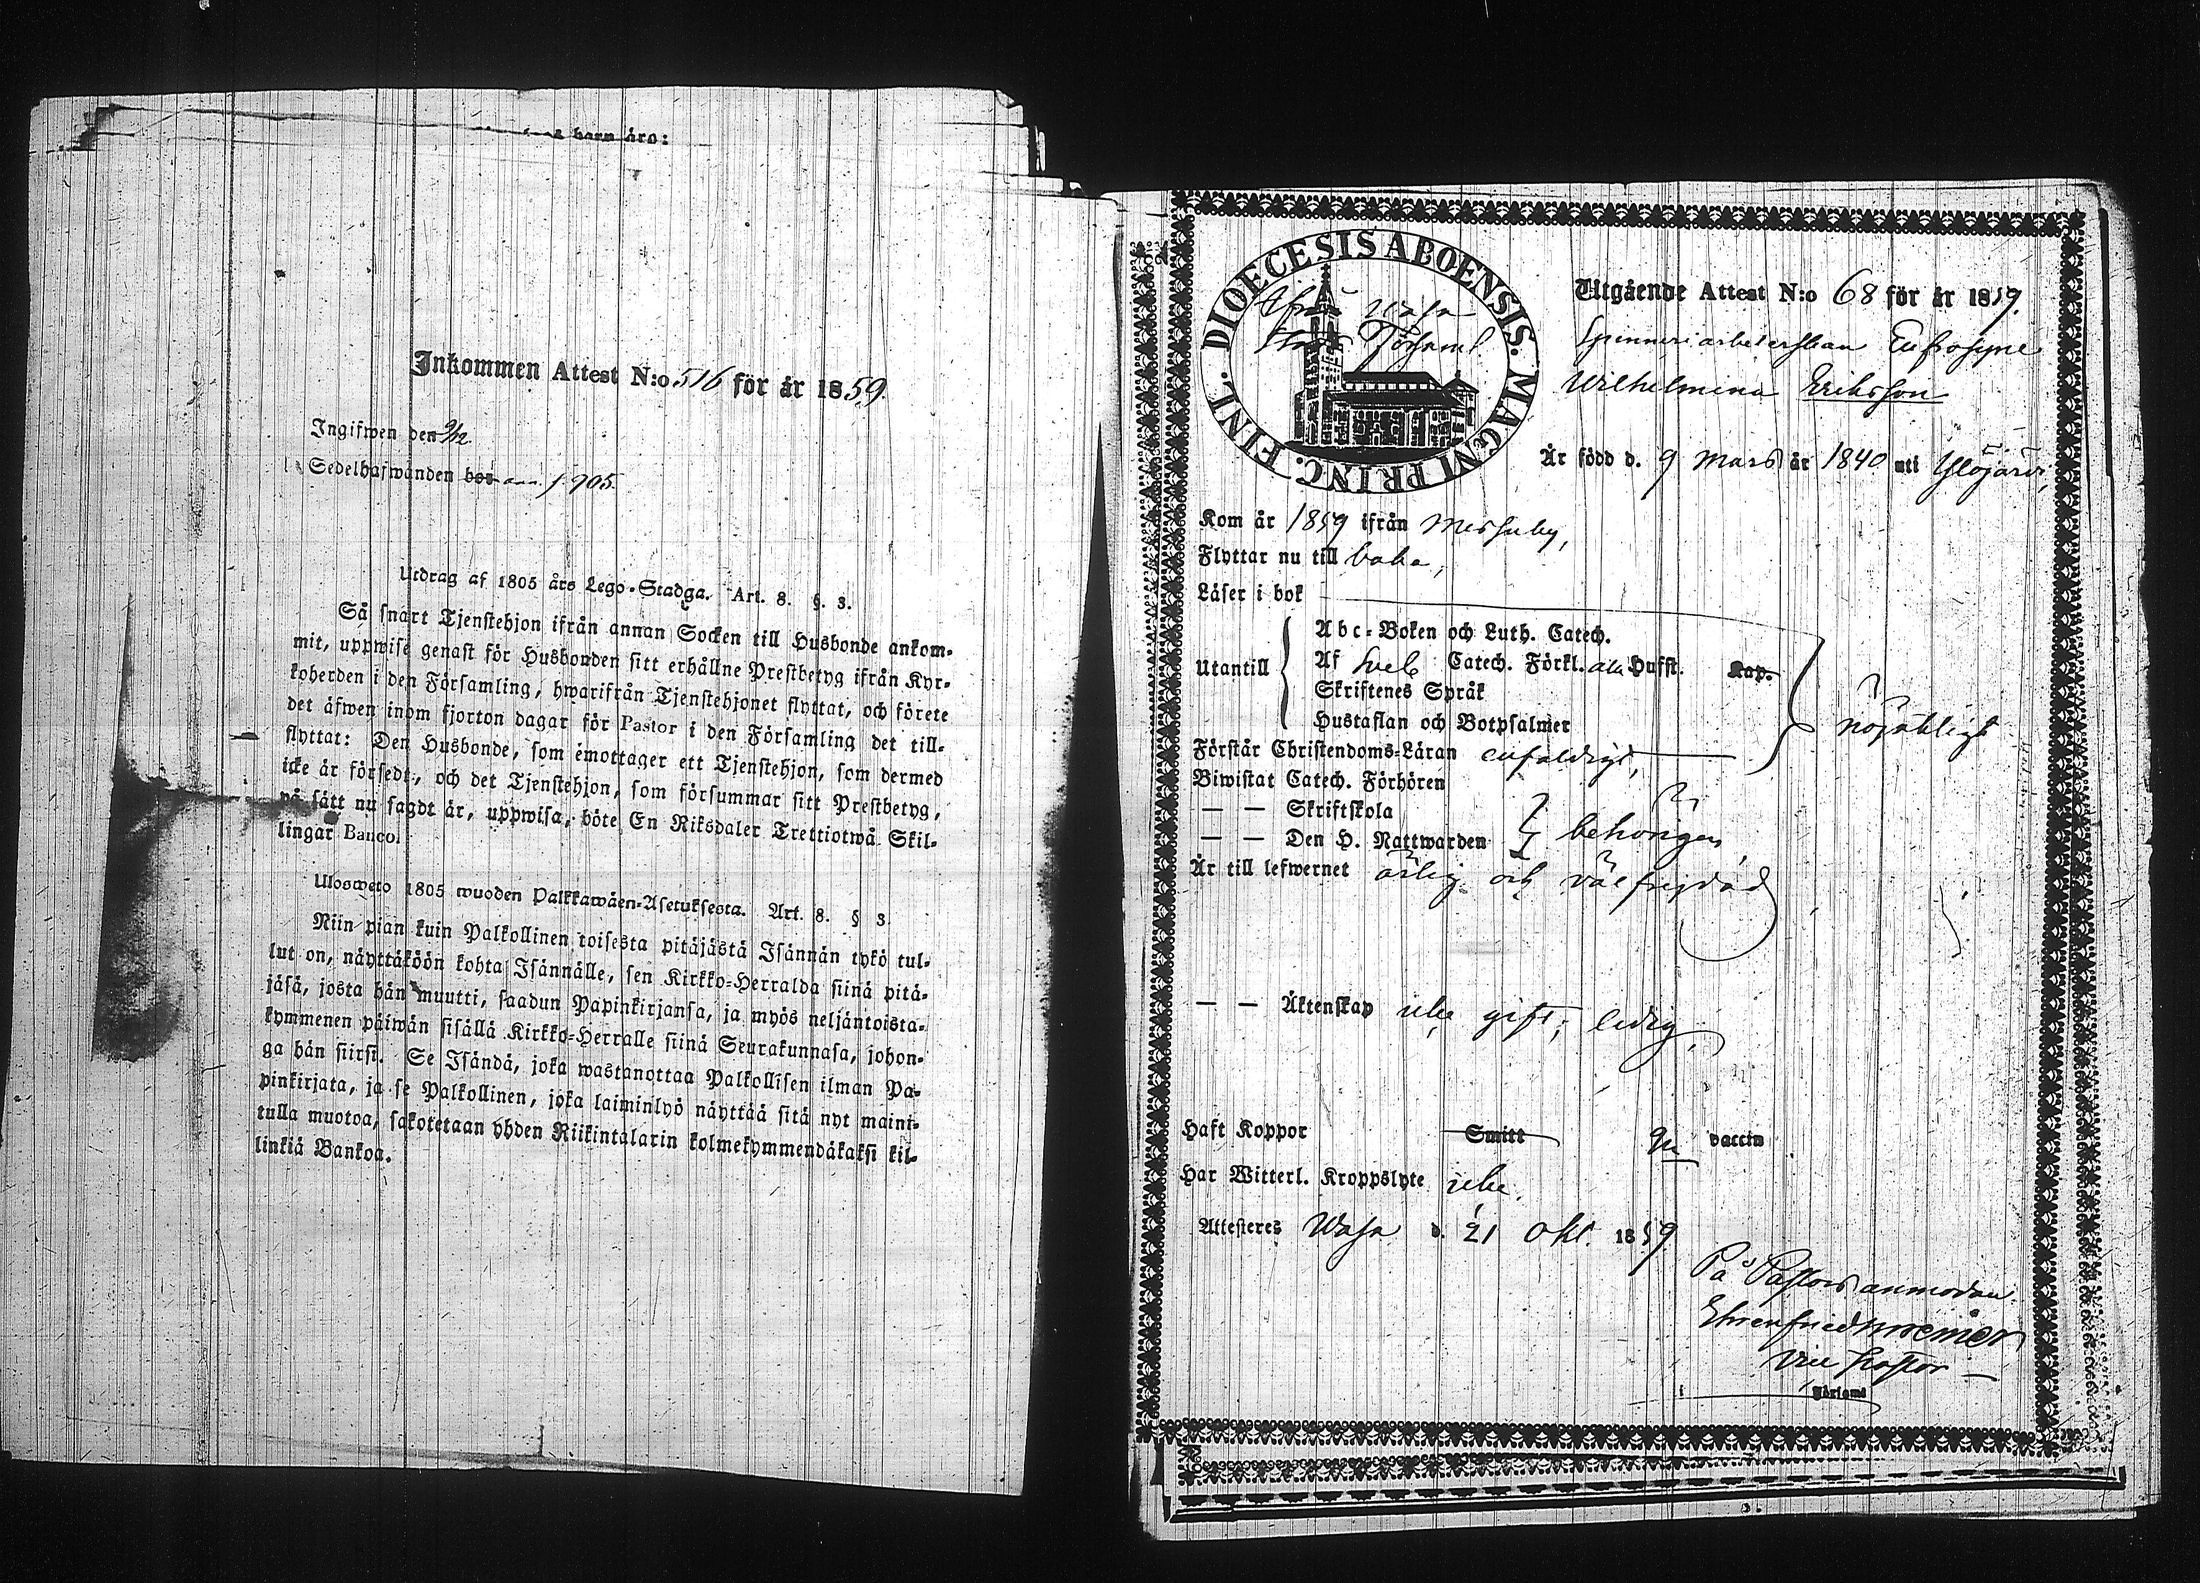 barn äro:
Inkommen Attest N:o 516 för år 1859.
Ingifwen den 9/12
Sedelhafwanden bor ann. p. 905.
Utdrag af 1805 års Lego-Stadga. Art. 8. §. 3.
Så snart Tjenstehjon ifrån annan Socken till Husbonde ankom-
mit, uppwise genast för Husbonden sitt erhållne Prestbetyg ifrån Kyr-
koherden i den Församling, hwarifrån Tjenstehjonet flyttat, och förete
det äfwen inom fjorton dagar för Pastor i den Församling det till-
flyttat: Den Husbonde, som emottager ett Tjenstehjon, som dermed
icke är försedt, och det Tjenstehjon, som försummar sitt Prestbetyg,
på sätt nu sagdt är, uppwisa, böte En Riksdaler Trettiotwå Skil-
lingar Banco.
Ulosweto 1805 wuoden Palkkawäen-Asetuksesta. Art. 8. § 3.
Niin pian kuin Palkollinen toisesta pitäjästä Isännän tykö tul-
lut on, näyttäköön kohta Isännälle, sen Kirkko-Herralda siinä pitä-
jäsä, josta hän muutti, saadun Papinkirjansa, ja myös neljäntoista-
kymmenen päiwän sisällä Kirkko-Herralle siinä Seurakunnasa, johon-
ga hän siirsi. Se Isändä, joka wastanottaa Palkollisen ilman Pa-
pinkirjata, ja se Palkollinen, joka laiminlyö näyttää sitä nyt maini-
tulla muotoa, sakotetaan yhden Riikintalarin kolmekymmendäkaksi kil-
linkiä Bankoa.
DIOECESIS ABOENSIS. MAGNI PRINC. FINL.
Ifrån Wasa
Stads Församl.
Utgående Attest N:o 68 för år 1859.
Spinneriarbeterskan Eufrosyne
Wilhelmina Eriksson
Är född d. 9 Mars år 1840 uti Ylöjärvi,
Kom år 1859 ifrån Messuby,
Flyttar nu till baka,
Läser i bok
Utantill
Abc-Boken och Luth. Catech.
Af Sveb Catech. Förkl. alla Hufst. Kap.
Skriftenes Språk
Hustaflan och Botpsalmer
nöjaktligt
Förstår Christendoms-Läran enfaldigt,
Biwistat Catech. Förhören
— — Skriftskola
— — Den H. Nattwarden
behörigen
Är till lefwernet ärlig och välfrejdad
— — Äktenskap icke gift, ledig,
Haft Koppor Smitt gm vaccin
Har Witterl. Kroppslyte icke.
Attesteres Wasa d. 21 Okt. 1859
På Pastors anmodan
Ehrenfried
vice pastor
i Församl